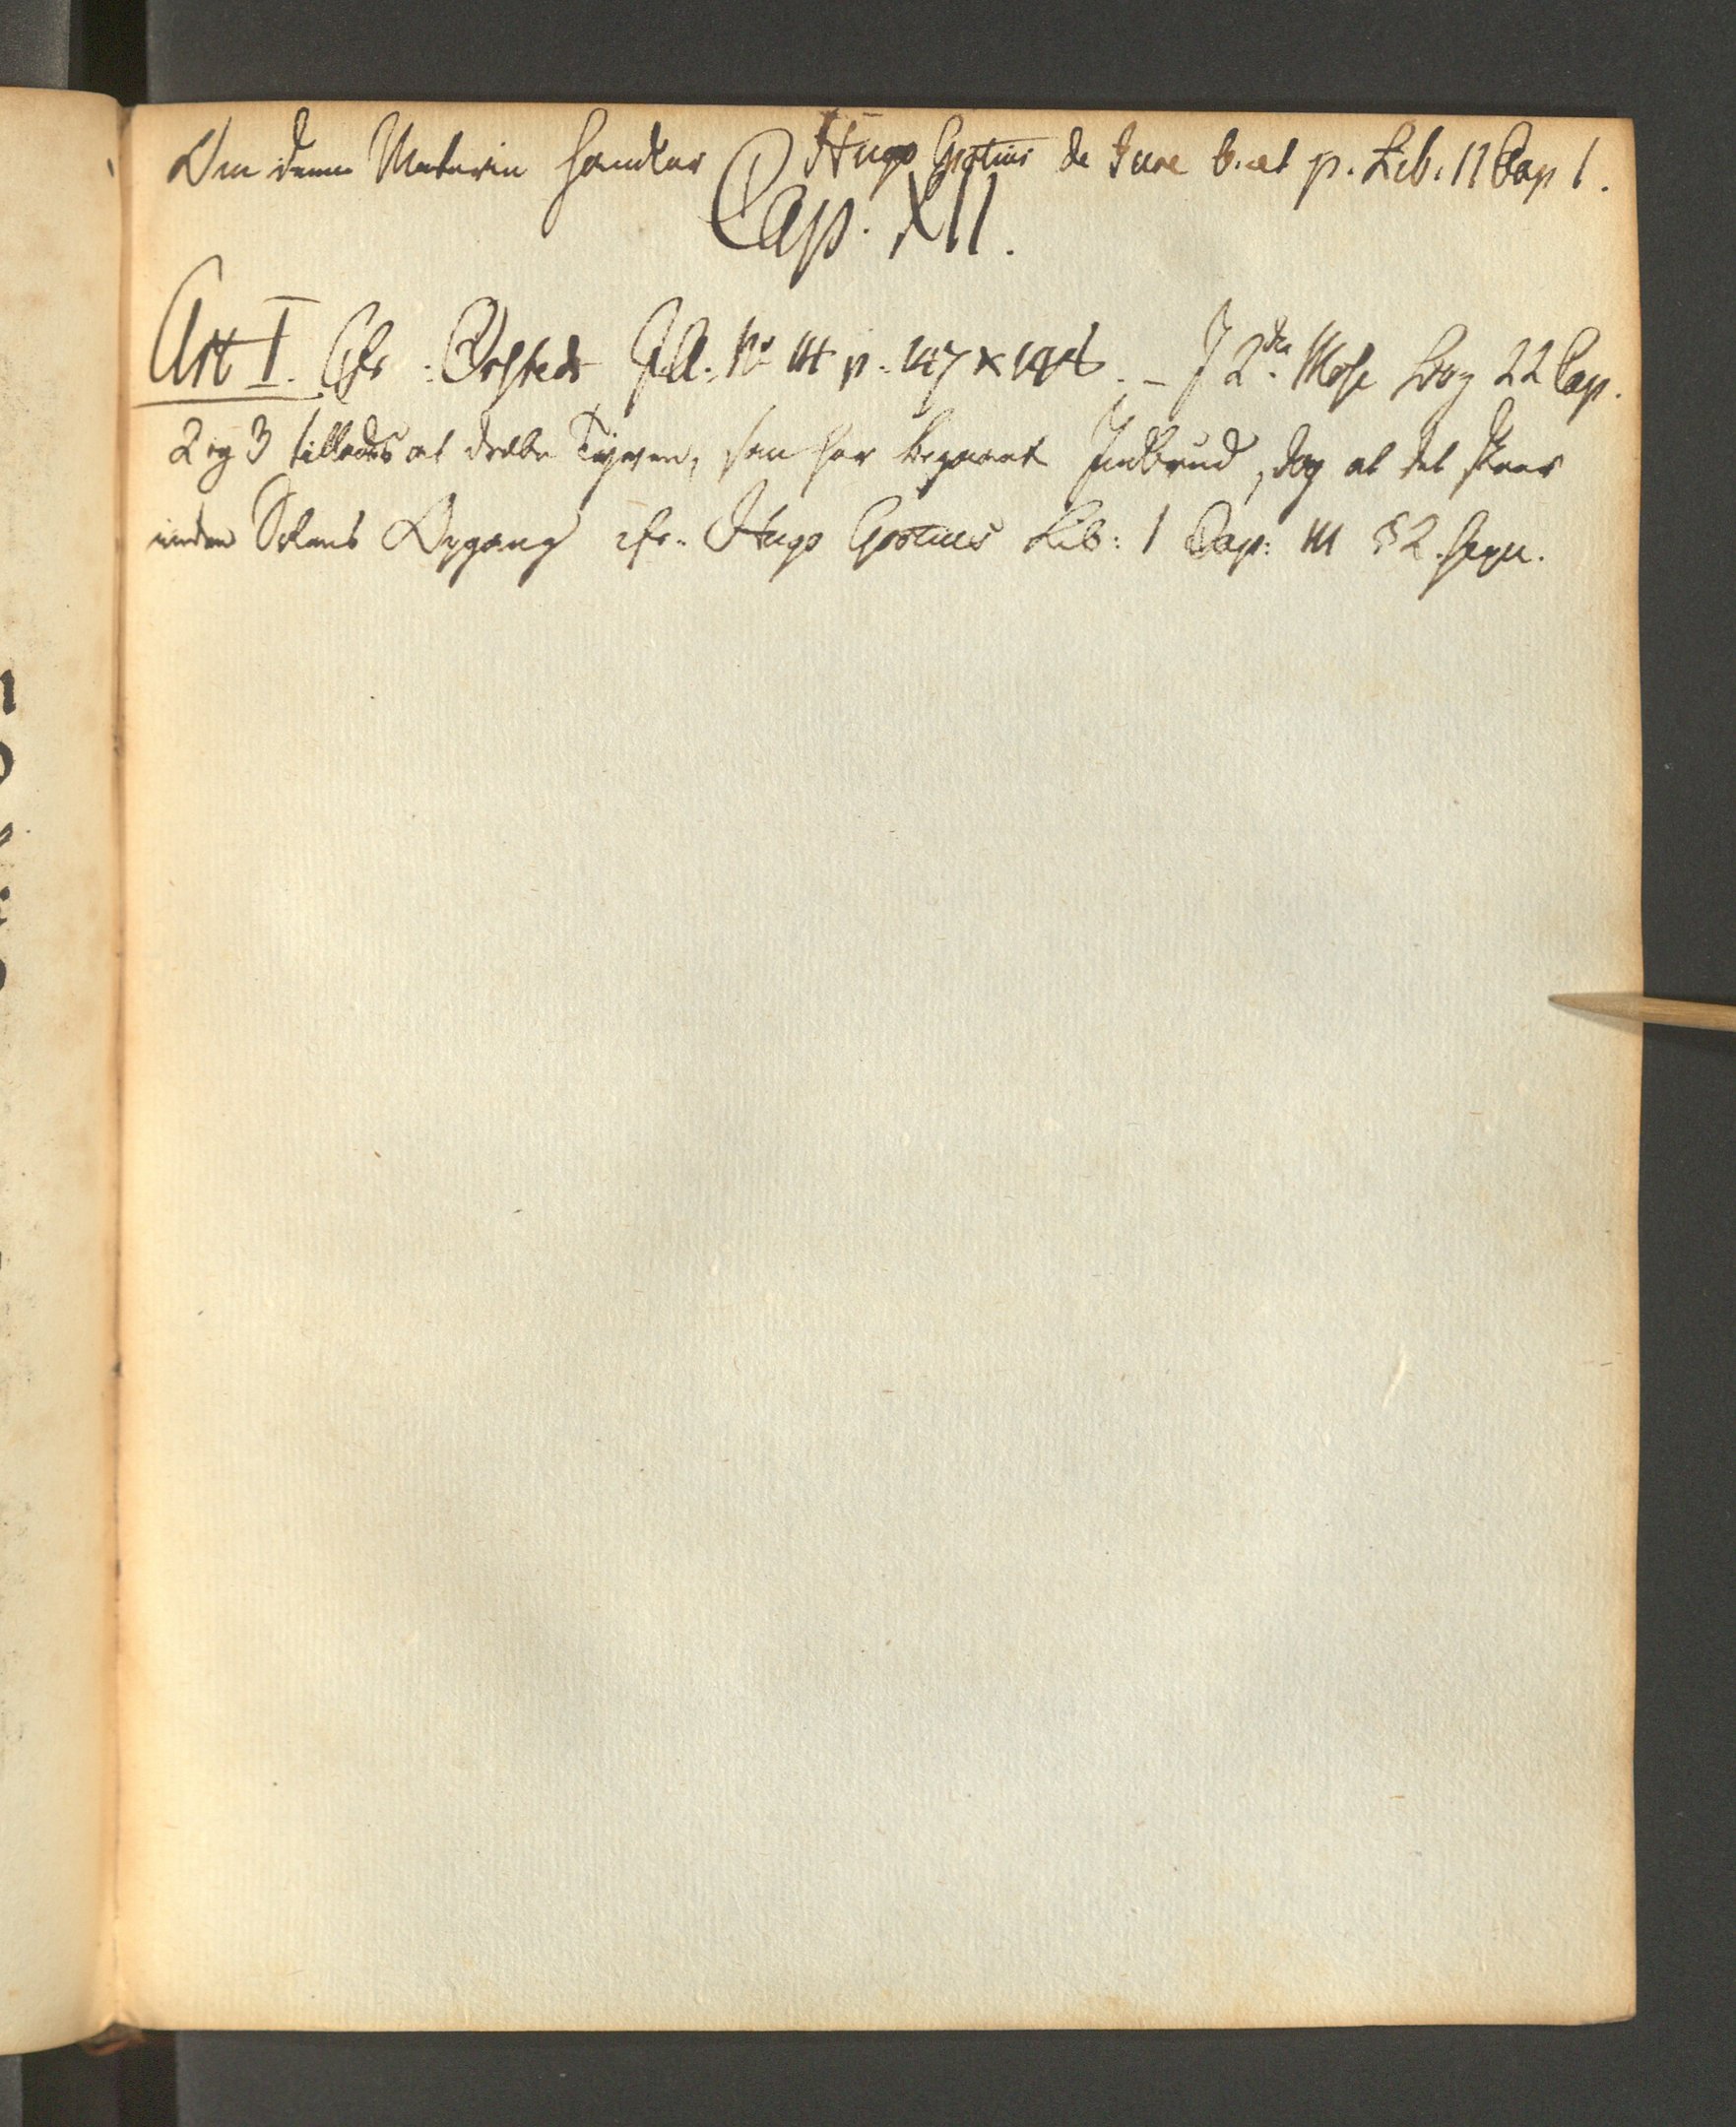 Om denne Materie handler Hugo Grotius de Jure b. et p. Lib. II Cap 1.
Cap. XII.
Art I. Cfr: Ørsteds p. 147 - I 2den Mose Bog 22 Cap.
2 og 3 tillades at dræbe Tyven, som har begaaet Indbrud, dog at det skeer
inden Solens Opgang cfr. Hugo Grotius Lib: 1 Cap: III § 2.